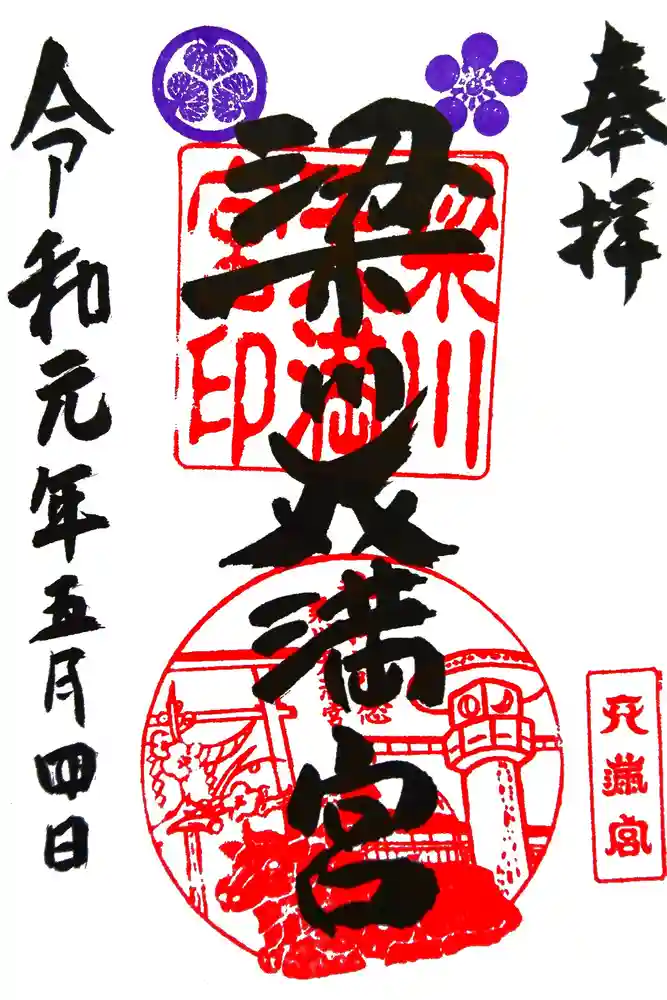 奉拝
梁川天満宮
梁川
天満
宮印
天満宮
令和元年五月四日